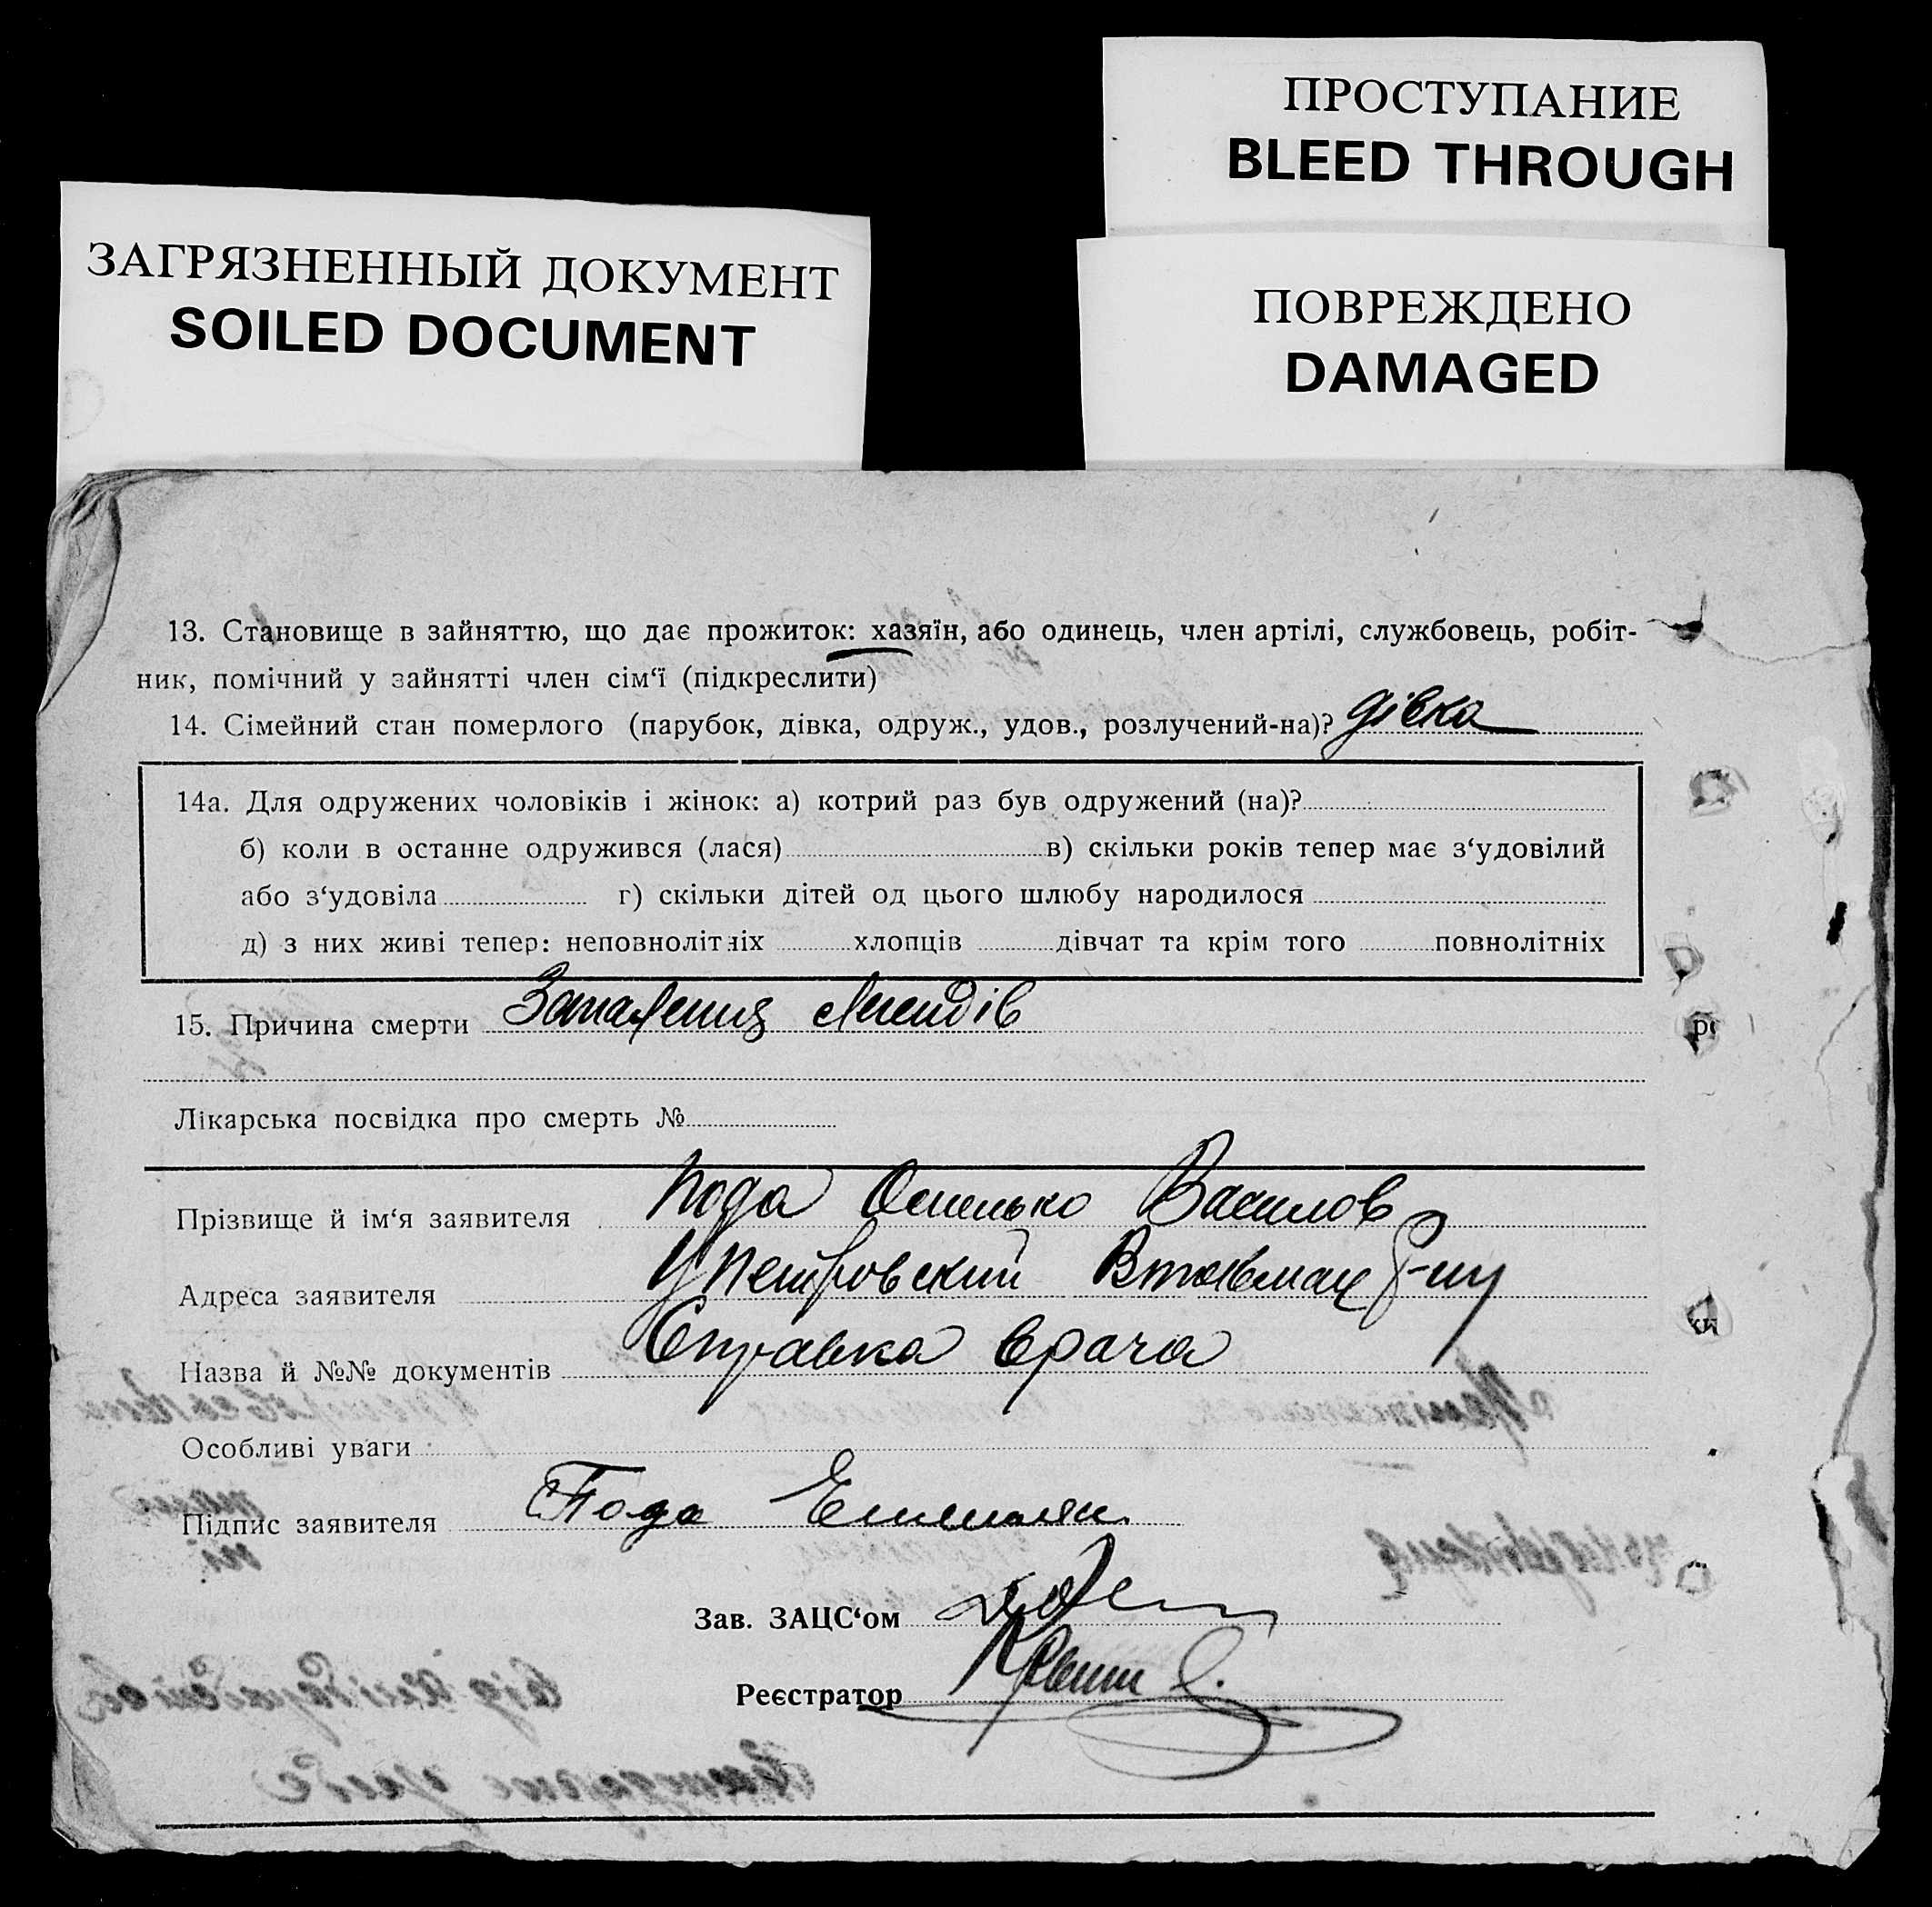 ПРОСТУПАНИЕ
BLEED THROUGH
ЗАГРЯЗНЕННЫЙ ДОКУМЕНТ
SOILED DOCUMENT
ПОВРЕЖДЕНО
DAMAGED
13. Становище в зайняттю, що дає прожиток: хазяїн, або одинець, член артілі, службовець, робіт-
ник, помічний у зайнятті член сім‘ї (підкреслити)
14. Сімейний стан померлого (парубок, дівка, одруж., удов., розлучений-на)? дівка
14а. Для одружених чоловіків і жінок: а) котрий раз був одружений (на)?
б) коли в останне одружився (лася) в) скільки років тепер має з‘удовілий
або з‘удовіла г) скільки дітей од цього шлюбу народилося
д) з них живі тепер: неповнолітніх хлопців дівчат та крім того повнолітніх
15. Причина смерти Запалення
Лікарська посвідка про смерть №
Прізвище й ім‘я заявителя Пода Василов
Адреса заявителя Петровский
Назва й №№ документів Справка врача
Особливі уваги
Підпис заявителя Пода
Зав. ЗАЦС‘ом
Реєстратор